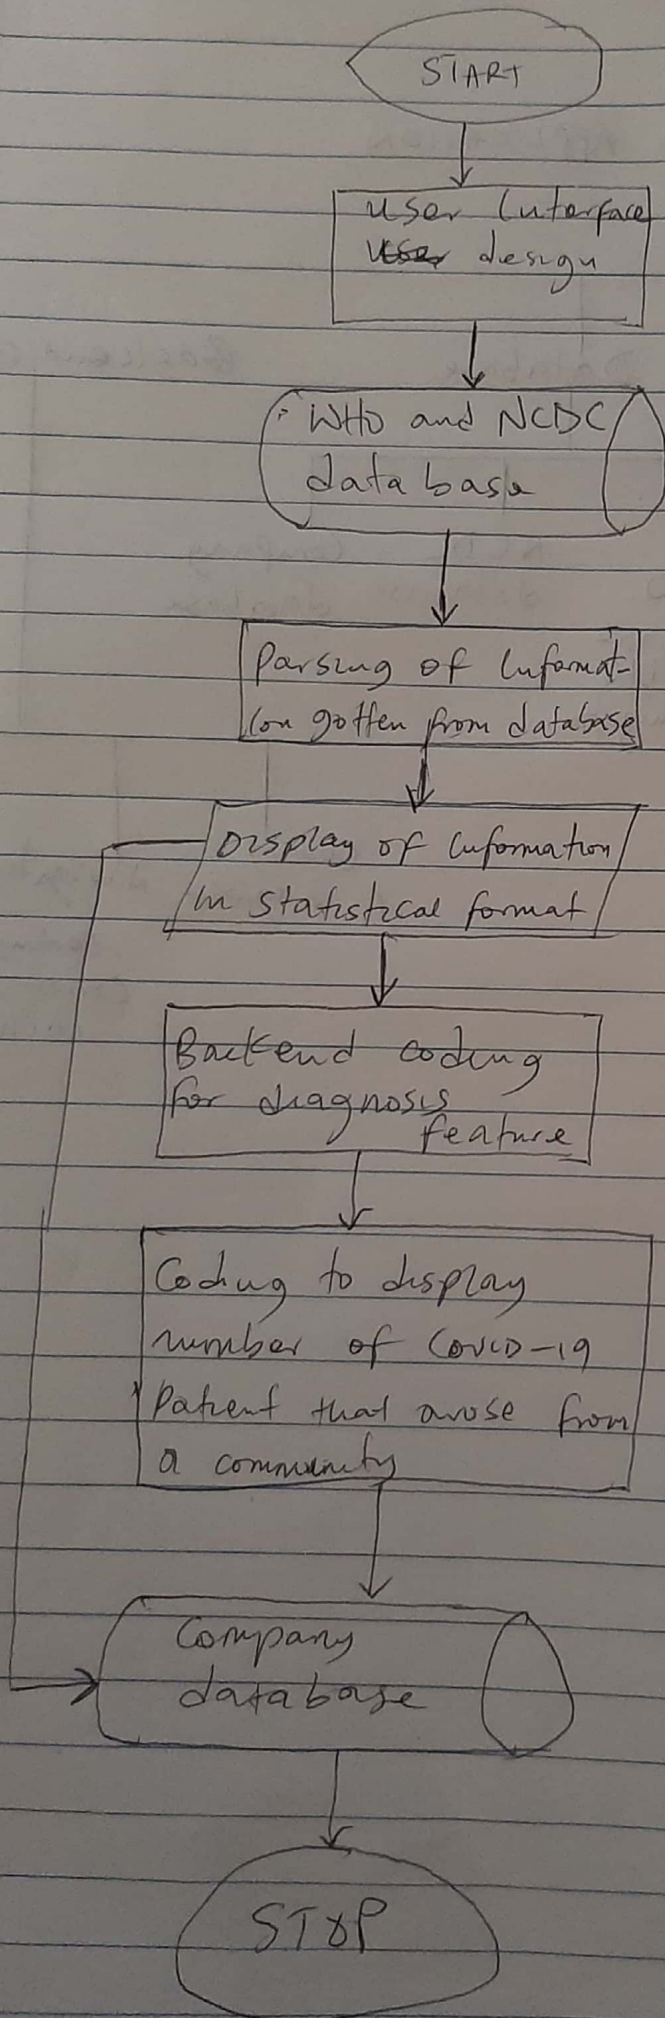 START
User Interface
design
WHO and NCDC
database
Parsing of Informat-
ion gotten from database
Display of Information
in statistical format
Backend coding
for diagnosis
feature
Coding to display
number of COVID-19
Patient that arose from
a community
Company
database
STOP